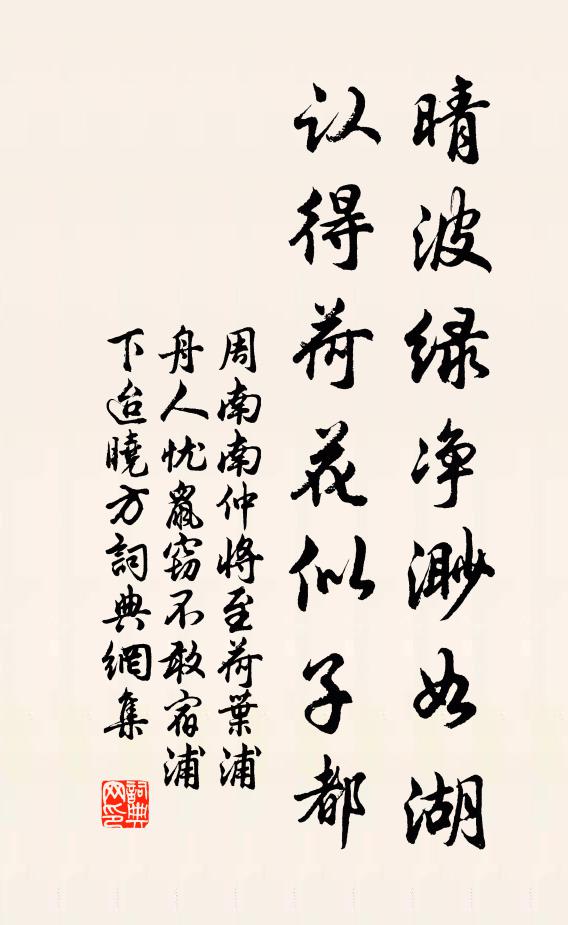 晴波绿净渺如湖
认得荷花似子都
周南南仲将至荷葉浦
舟人忧鼠窃不敢宿浦
下迨曉方詞典網集
詞典
网印